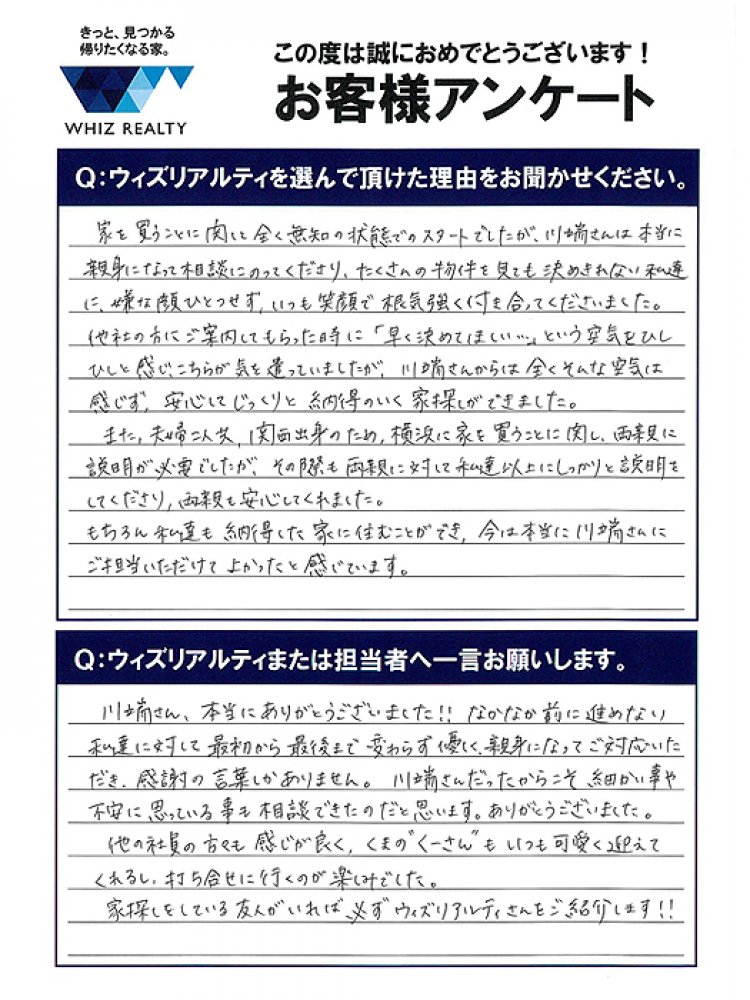 きっと、見つかる
帰りたくなる家。
WHIZ REALTY
この度は誠におめでとうございます！
お客様アンケート
Q：ウィズリアルティを選んで頂けた理由をお聞かせください。
家を買うことに関して全く無知の状態でのスタートでしたが、川端さんは本当に
親身になって相談にのってくださり、たくさんの物件を見ても決めきれない私達
に、嫌な顔ひとつせず、いつも笑顔で根気強く付き合ってくださいました。
他社の方にご案内してもらった時に「早く決めてほしい…」という空気をひし
ひしと感じこちらが気を遣っていましたが、川端さんからは全くそんな空気は
感じず、安心してじっくりと納得のいく家探しができました。
また、夫婦二人共、関西出身のため、横浜に家を買うことに関し、両親に
説明が必要でしたが、その際も両親に対して私達以上にしっかりと説明を
してくださり、両親も安心してくれました。
もちろん私達も納得した家に住むことができ、今は本当に川端さんに
ご担当いただけてよかったと感じています。
Q：ウィズリアルティまたは担当者へ一言お願いします。
川端さん、本当にありがとうございました!! なかなか前に進めない
私達に対して最初から最後まで変わらず優しく、親身になってご対応いた
だき、感謝の言葉しかありません。川端さんだったからこそ細かい事や
不安に思っている事も相談できたのだと思います。ありがとうございました。
他の社員の方々も感じが良く、くまの"くーさん"もいつも可愛く迎えて
くれるし、打ち合せに行くのが楽しみでした。
家探しをしている友人がいれば必ずウィズリアルティさんをご紹介します!!